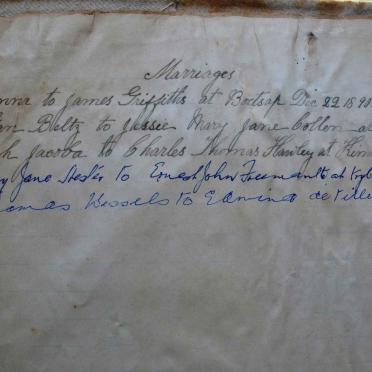 Marriages
nna to James Griffiths at Bootsap Dec 22 1890
an Boltz to Jessie Mary Jane Collon at
k Jacoba to Charles Thomas Hanley at Kim
y Jane Hester to Ernest John Freemantle at
omas Wessels to Edwina de Villi